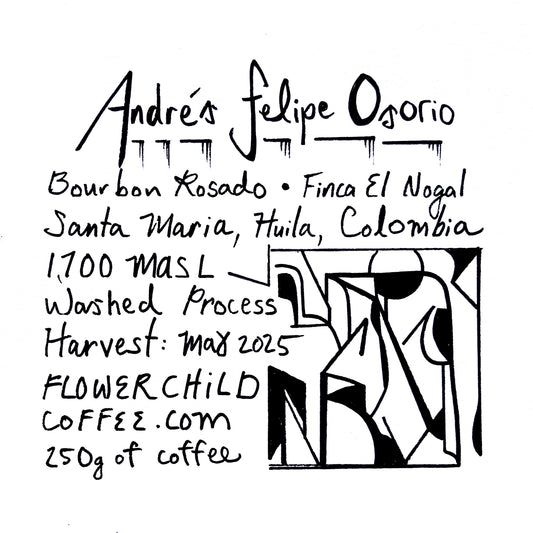 Andrés Felipe Osorio
Bourbon Rosado • Finca El Nogal
Santa Maria, Huila, Colombia
1,700 MASL
Washed Process
Harvest: May 2025
FLOWERCHiLD
COFFEE.COM
250g of coffee